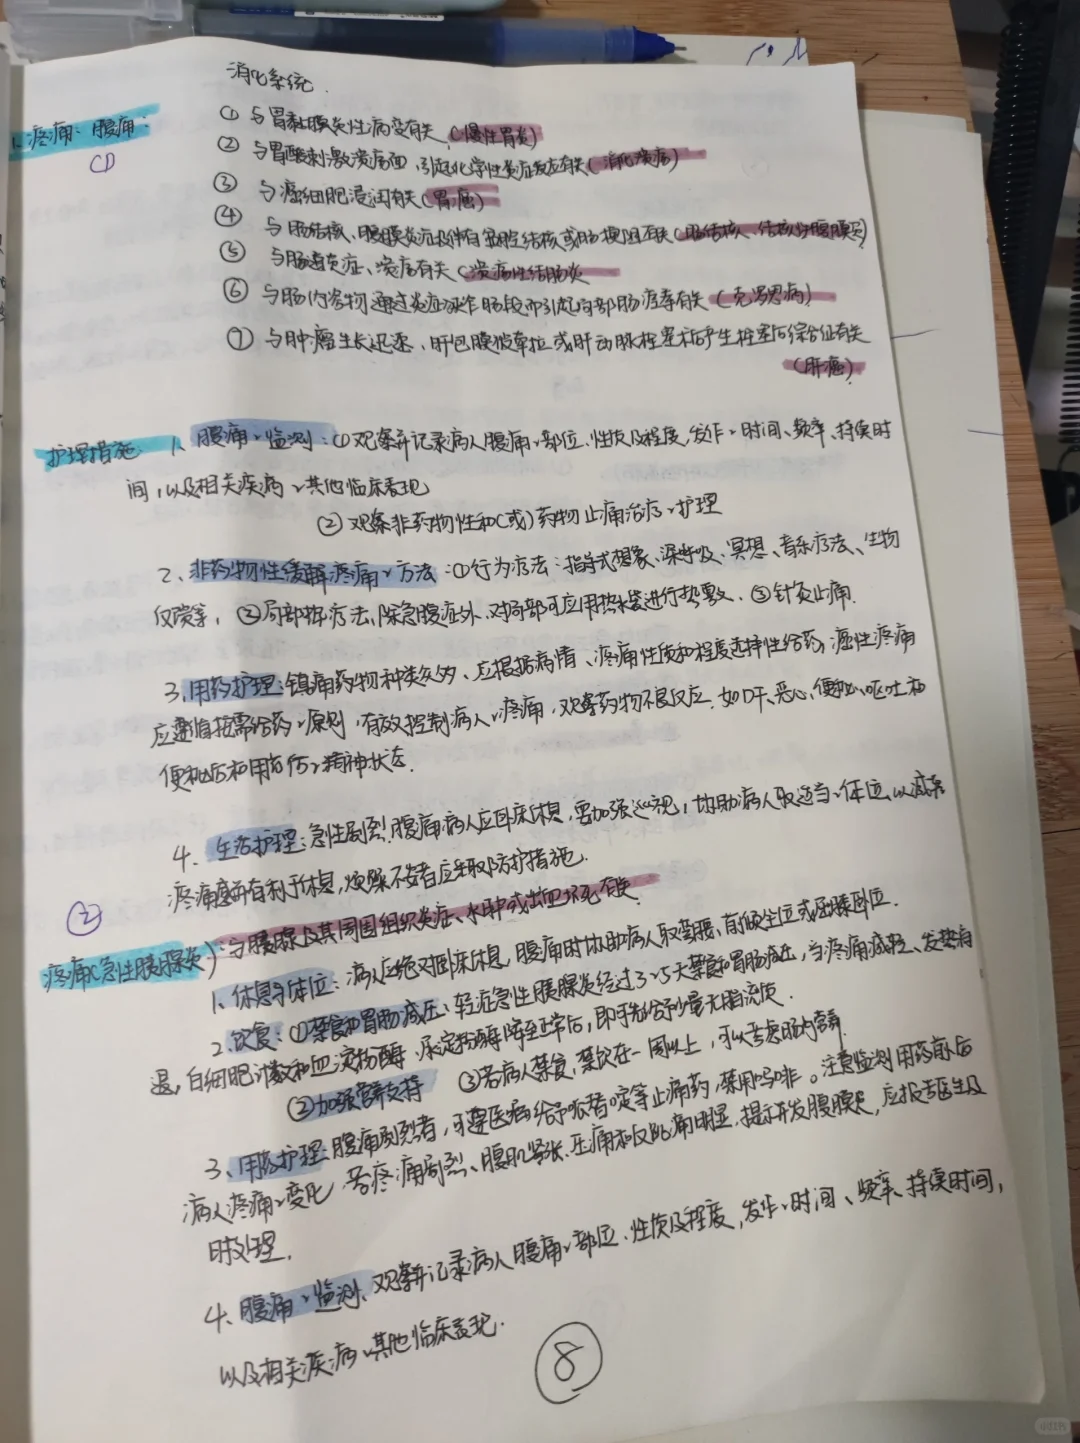 消化系统
1. 疼痛:腹痛:
① 与胃黏膜炎性病变有关(慢性胃炎)
② 与胃酸刺激溃疡面,引起化学性炎症反应有关(消化溃疡)
③ 与癌细胞浸润有关(胃癌)
④ 与肠结核、腹膜炎症及伴有盆腔结核或肠梗阻有关(肠结核、结核性腹膜炎)
⑤ 与肠道炎症、溃疡有关(溃疡性结肠炎
⑥ 与肠内容物通过炎症狭窄肠段而引起局部肠痉挛有关(克罗恩病)
⑦ 与肿瘤生长迅速、肝包膜被牵拉或肝动脉栓塞术后产生栓塞后综合征有关
(肝癌)
护理措施 1、腹痛、监测:①观察并记录病人腹痛、部位、性质及程度,发作、时间、频率、持续时
间,以及相关疾病、其他临床表现
② 观察非药物性和(或)药物止痛治疗、护理
2、非药物性缓解疼痛、方法:①行为疗法:指导式想象、深呼吸、冥想、音乐疗法、生物
反馈等, ②局部热疗法,除急腹症外,对局部可应用热水袋进行热敷、③针灸止痛.
3、用药护理:镇痛药物种类众多、应根据病情、疼痛性质和程度选择性给药,癌性疼痛
应遵循按需给药、原则,有效控制病人、疼痛,观察药物不良反应.如口干、恶心、便秘、呕吐和
便秘后和用药后、精神状态.
4、生活护理:急性剧烈腹痛病人应卧床休息,要加强巡视,协助病人取适当、体位,以减轻
疼痛感并有利于休息,烦躁不安者应采取防护措施.
②
疼痛(急性胰腺炎):与胰腺及其周围组织炎症、水肿或出血坏死有关
1、休息与体位:病人应绝对卧床休息,腹痛时协助病人取弯腰、前倾坐位或屈膝卧位.
2、饮食:①禁食和胃肠减压:轻症急性胰腺炎经过3~5天禁食和胃肠减压,当疼痛减轻、发热消
退,白细胞计数和血、淀粉酶、尿淀粉酶降至正常后,即可先给予少量无脂流质.
②加强营养支持 ③若病人禁食、禁饮在一周以上,可以考虑肠内营养
3、用药护理:腹痛剧烈者,可遵医嘱给予哌替啶等止痛药,禁用吗啡。注意监测用药前后
病人疼痛、变化,若疼痛剧烈、腹肌紧张、压痛和反跳痛明显,提示并发腹膜炎,应报告医生及
时处理.
4、腹痛、监测、观察并记录病人腹痛、部位、性质及程度,发作、时间、频率、持续时间,
以及相关疾病、其他临床表现.
8
小红书